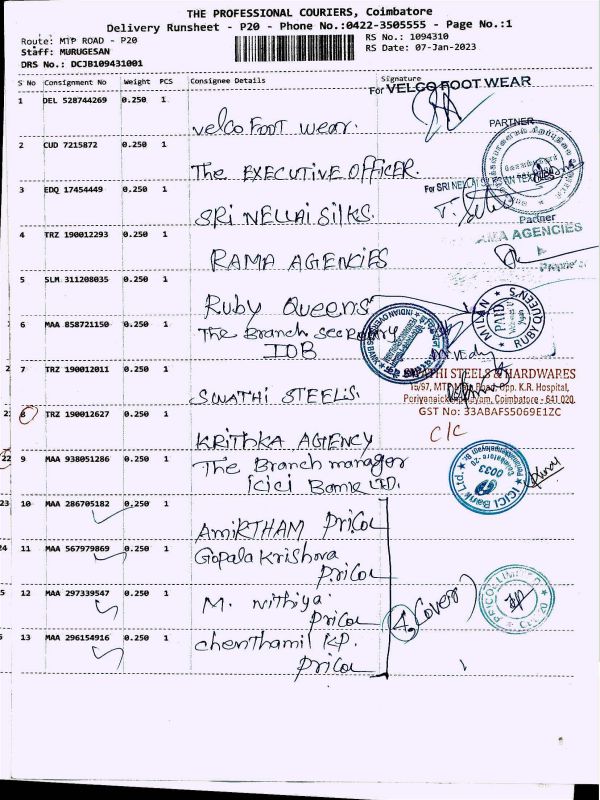 THE PROFESSIONAL COURIERS, Coimbatore
Delivery Runsheet - P20 - Phone No.:0422-3505555 - Page No.:1
Route: MTP ROAD - P20
Staff: MURUGESAN
DRS No.: DCJB109431001
RS No.: 1094310
RS Date: 07-Jan-2023
S No Consignment No Weight PCS Consignee Details Signature
For VELCO FOOT WEAR
1 DEL 528744269 0.250 1
Velco Foot wear.
PARTNER
2 CUD 7215872 0.250 1
The EXECUTIVE OFFICER.
3 EDQ 17454449 0.250 1
For SRI NELLAI
SRI NELLAI SILKS.
Partner
4 TRZ 190012293 0.250 1
RAMA AGENCIES
RAMA AGENCIES
5 SLM 311208035 0.250 1
Ruby Queens
MILAN RUBY QUEEN'S
PAID
6 MAA 858721150 0.250 1
The Branch secretary
IOB
7 TRZ 190012011 0.250 1
SWATHI STEELS & HARDWARES
15/97, MTP Main Road, Opp. K.R. Hospital,
Periyanaickenpalayam, Coimbatore - 641 020.
GST No: 33ABAFS5069E1ZC
SWATHI STEELS.
8 TRZ 190012627 0.250 1
C/C
KRITHKA AGENCY
9 MAA 938051286 0.250 1
The Branch manager
ICICI Bank LTD.
ICICI Bank
0033
10 MAA 286705182 0.250 1
AmiRTHAM Pricol
11 MAA 567979869 0.250 1
Gopala Krishova
Pricol
12 MAA 297339547 0.250 1
M. Nithiya
Pricol
4 Cover)
PRICOL LIMITED
13 MAA 296154916 0.250 1
Chenthamil K.P.
Pricol